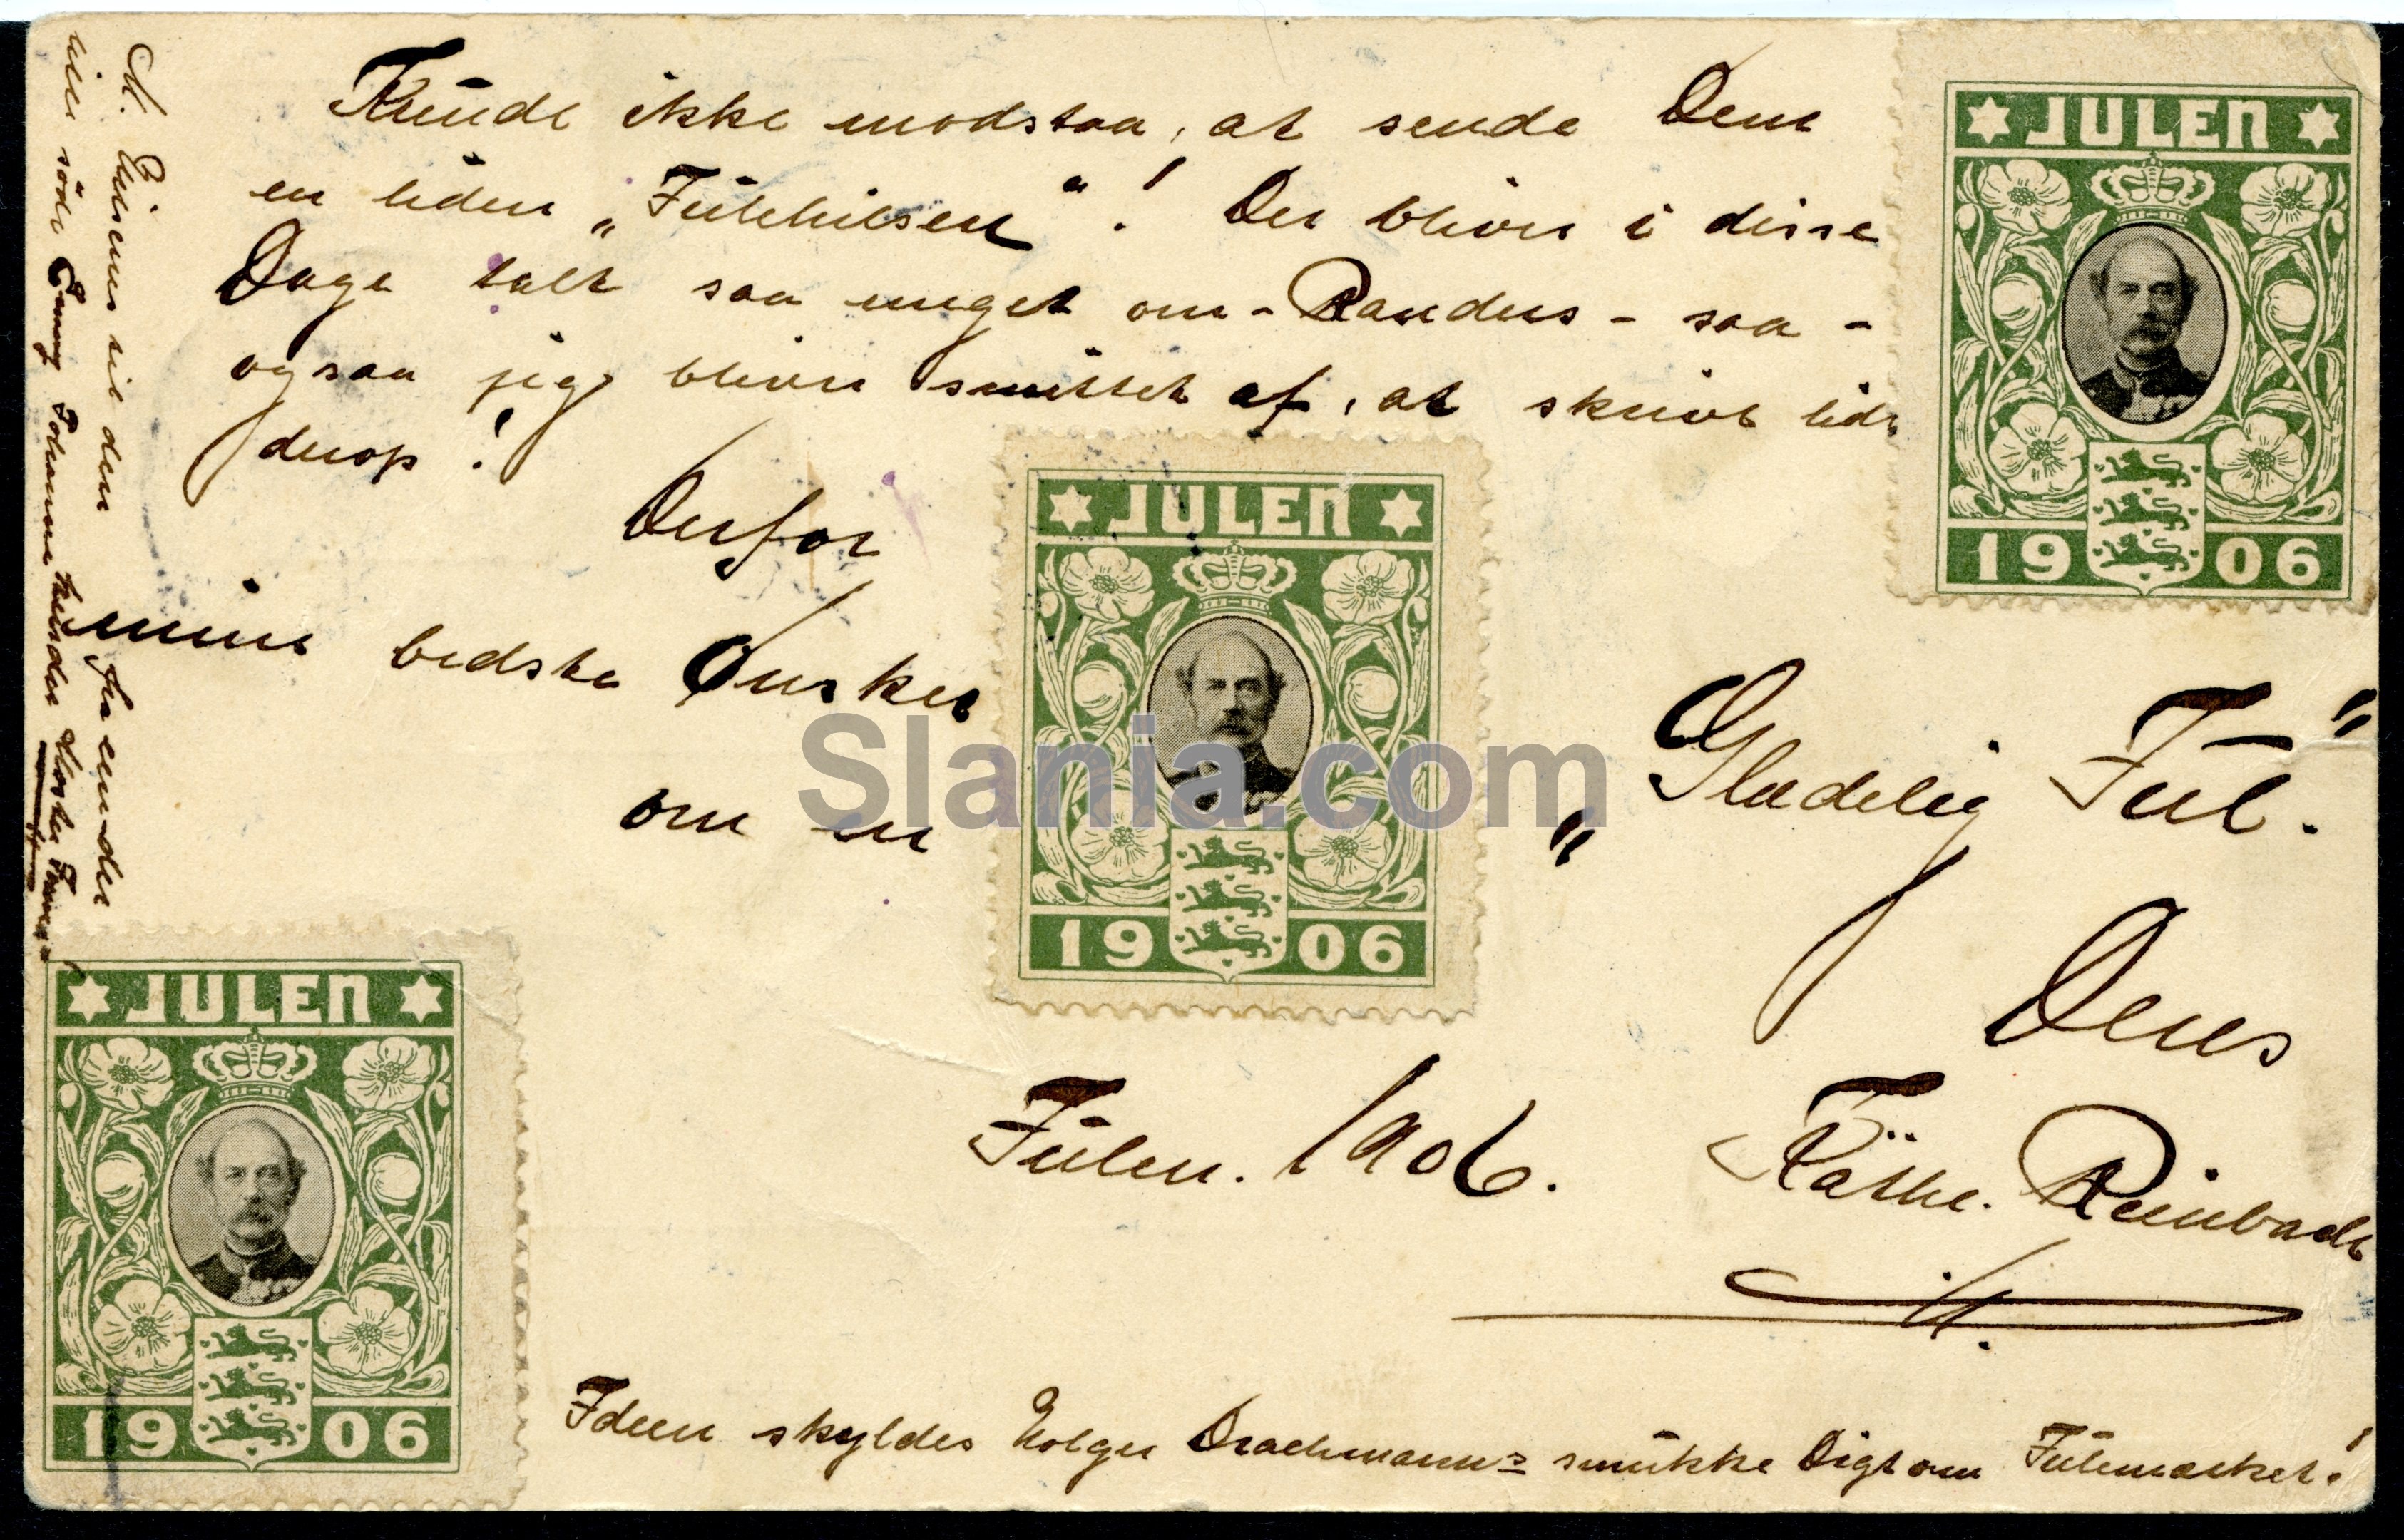 Kunde ikke modstaa, at sende Dem
en liden „Julehilsen“! Der bliver i disse
Dage talt saa meget om - Randers - saa -
ogsaa jeg bliver smittet af, at skrive lidt
derop!
Derfor
mine bedste Ønsker
om en „Glædelig Jul.“
Deres
Julen. 1906. Käthe. Reinbach
Ideen skyldes Holger Drachmanns smukke Digt om Julemærket!
til den
lille søde Emmy Johanne
fra
JULEN
1906
JULEN
1906
JULEN
1906
Slania.com